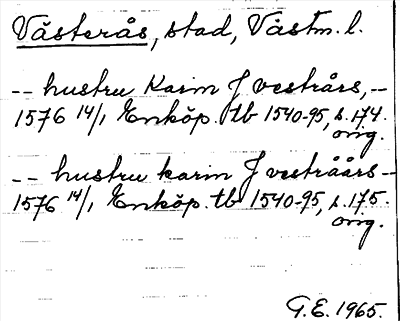 Västerås, stad, Västm. l.
-- hustru Karin J vestrårs, --
1576 14/1 Enköp. tb 1540-95, s. 174.
orig.
-- hustru karin J vestråårs --
1576 14/1 Enköp. tb 1540-95, s. 175.
orig.
G.E. 1965.